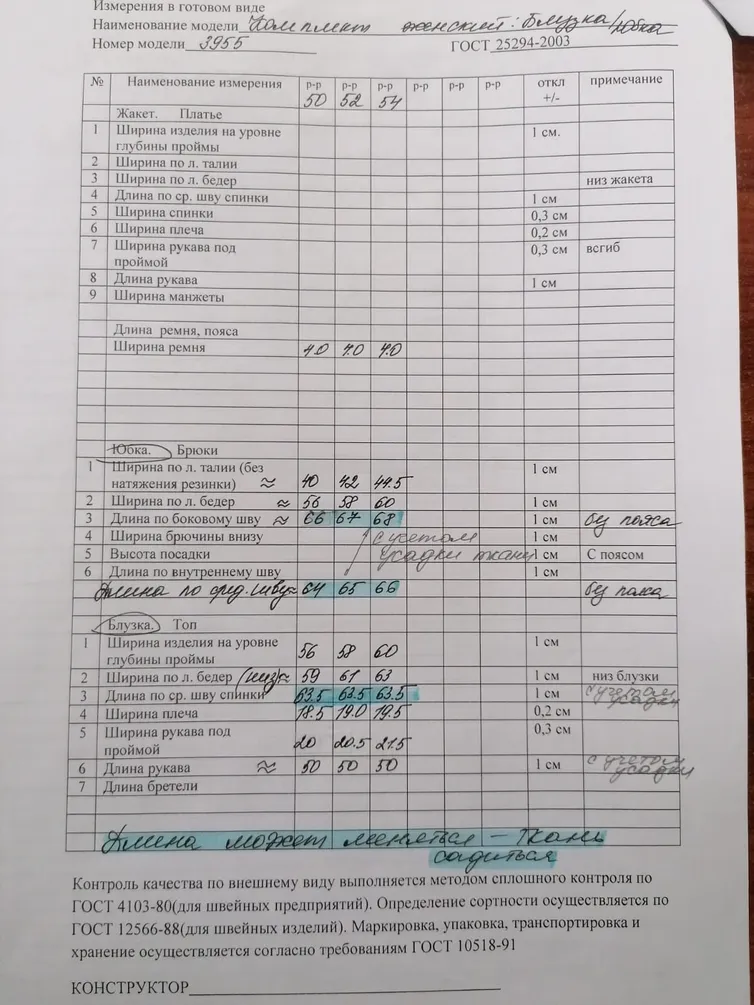 Измерения в готовом виде
Наименование модели Комплект женский: Блузка/юбка
Номер модели 3955 ГОСТ 25294-2003
№ Наименование измерения р-р 50 р-р 52 р-р 54 р-р р-р р-р откл +/- примечание
Жакет. Платье
1 Ширина изделия на уровне глубины проймы 1 см.
2 Ширина по л. талии
3 Ширина по л. бедер низ жакета
4 Длина по ср. шву спинки 1 см
5 Ширина спинки 0,3 см
6 Ширина плеча 0,2 см
7 Ширина рукава под проймой 0,3 см всгиб
8 Длина рукава 1 см
9 Ширина манжеты
Длина ремня, пояса
Ширина ремня 4.0 4.0 4.0
Юбка. Брюки
1 Ширина по л. талии (без натяжения резинки) ≈ 40 42 44.5 1 см
2 Ширина по л. бедер ≈ 56 58 60 1 см
3 Длина по боковому шву ≈ 66 67 68 1 см без пояса
4 Ширина брючины внизу с учетом 1 см
5 Высота посадки усадки ткани 1 см С поясом
6 Длина по внутреннему шву 1 см
Длина по сред. шву ≈ 64 65 66 без пояса
Блузка. Топ
1 Ширина изделия на уровне глубины проймы 56 58 60 1 см
2 Ширина по л. бедер (низ) ≈ 59 61 63 1 см низ блузки
3 Длина по ср. шву спинки 63.5 63.5 63.5 1 см с учетом усадки
4 Ширина плеча 18.5 19.0 19.5 0,2 см
5 Ширина рукава под проймой 20 20.5 21.5 0,3 см
6 Длина рукава ≈ 50 50 50 1 см с учетом усадки
7 Длина бретели
Длина может меняться – ткань
садиться
Контроль качества по внешнему виду выполняется методом сплошного контроля по
ГОСТ 4103-80(для швейных предприятий). Определение сортности осуществляется по
ГОСТ 12566-88(для швейных изделий). Маркировка, упаковка, транспортировка и
хранение осуществляется согласно требованиям ГОСТ 10518-91
КОНСТРУКТОР